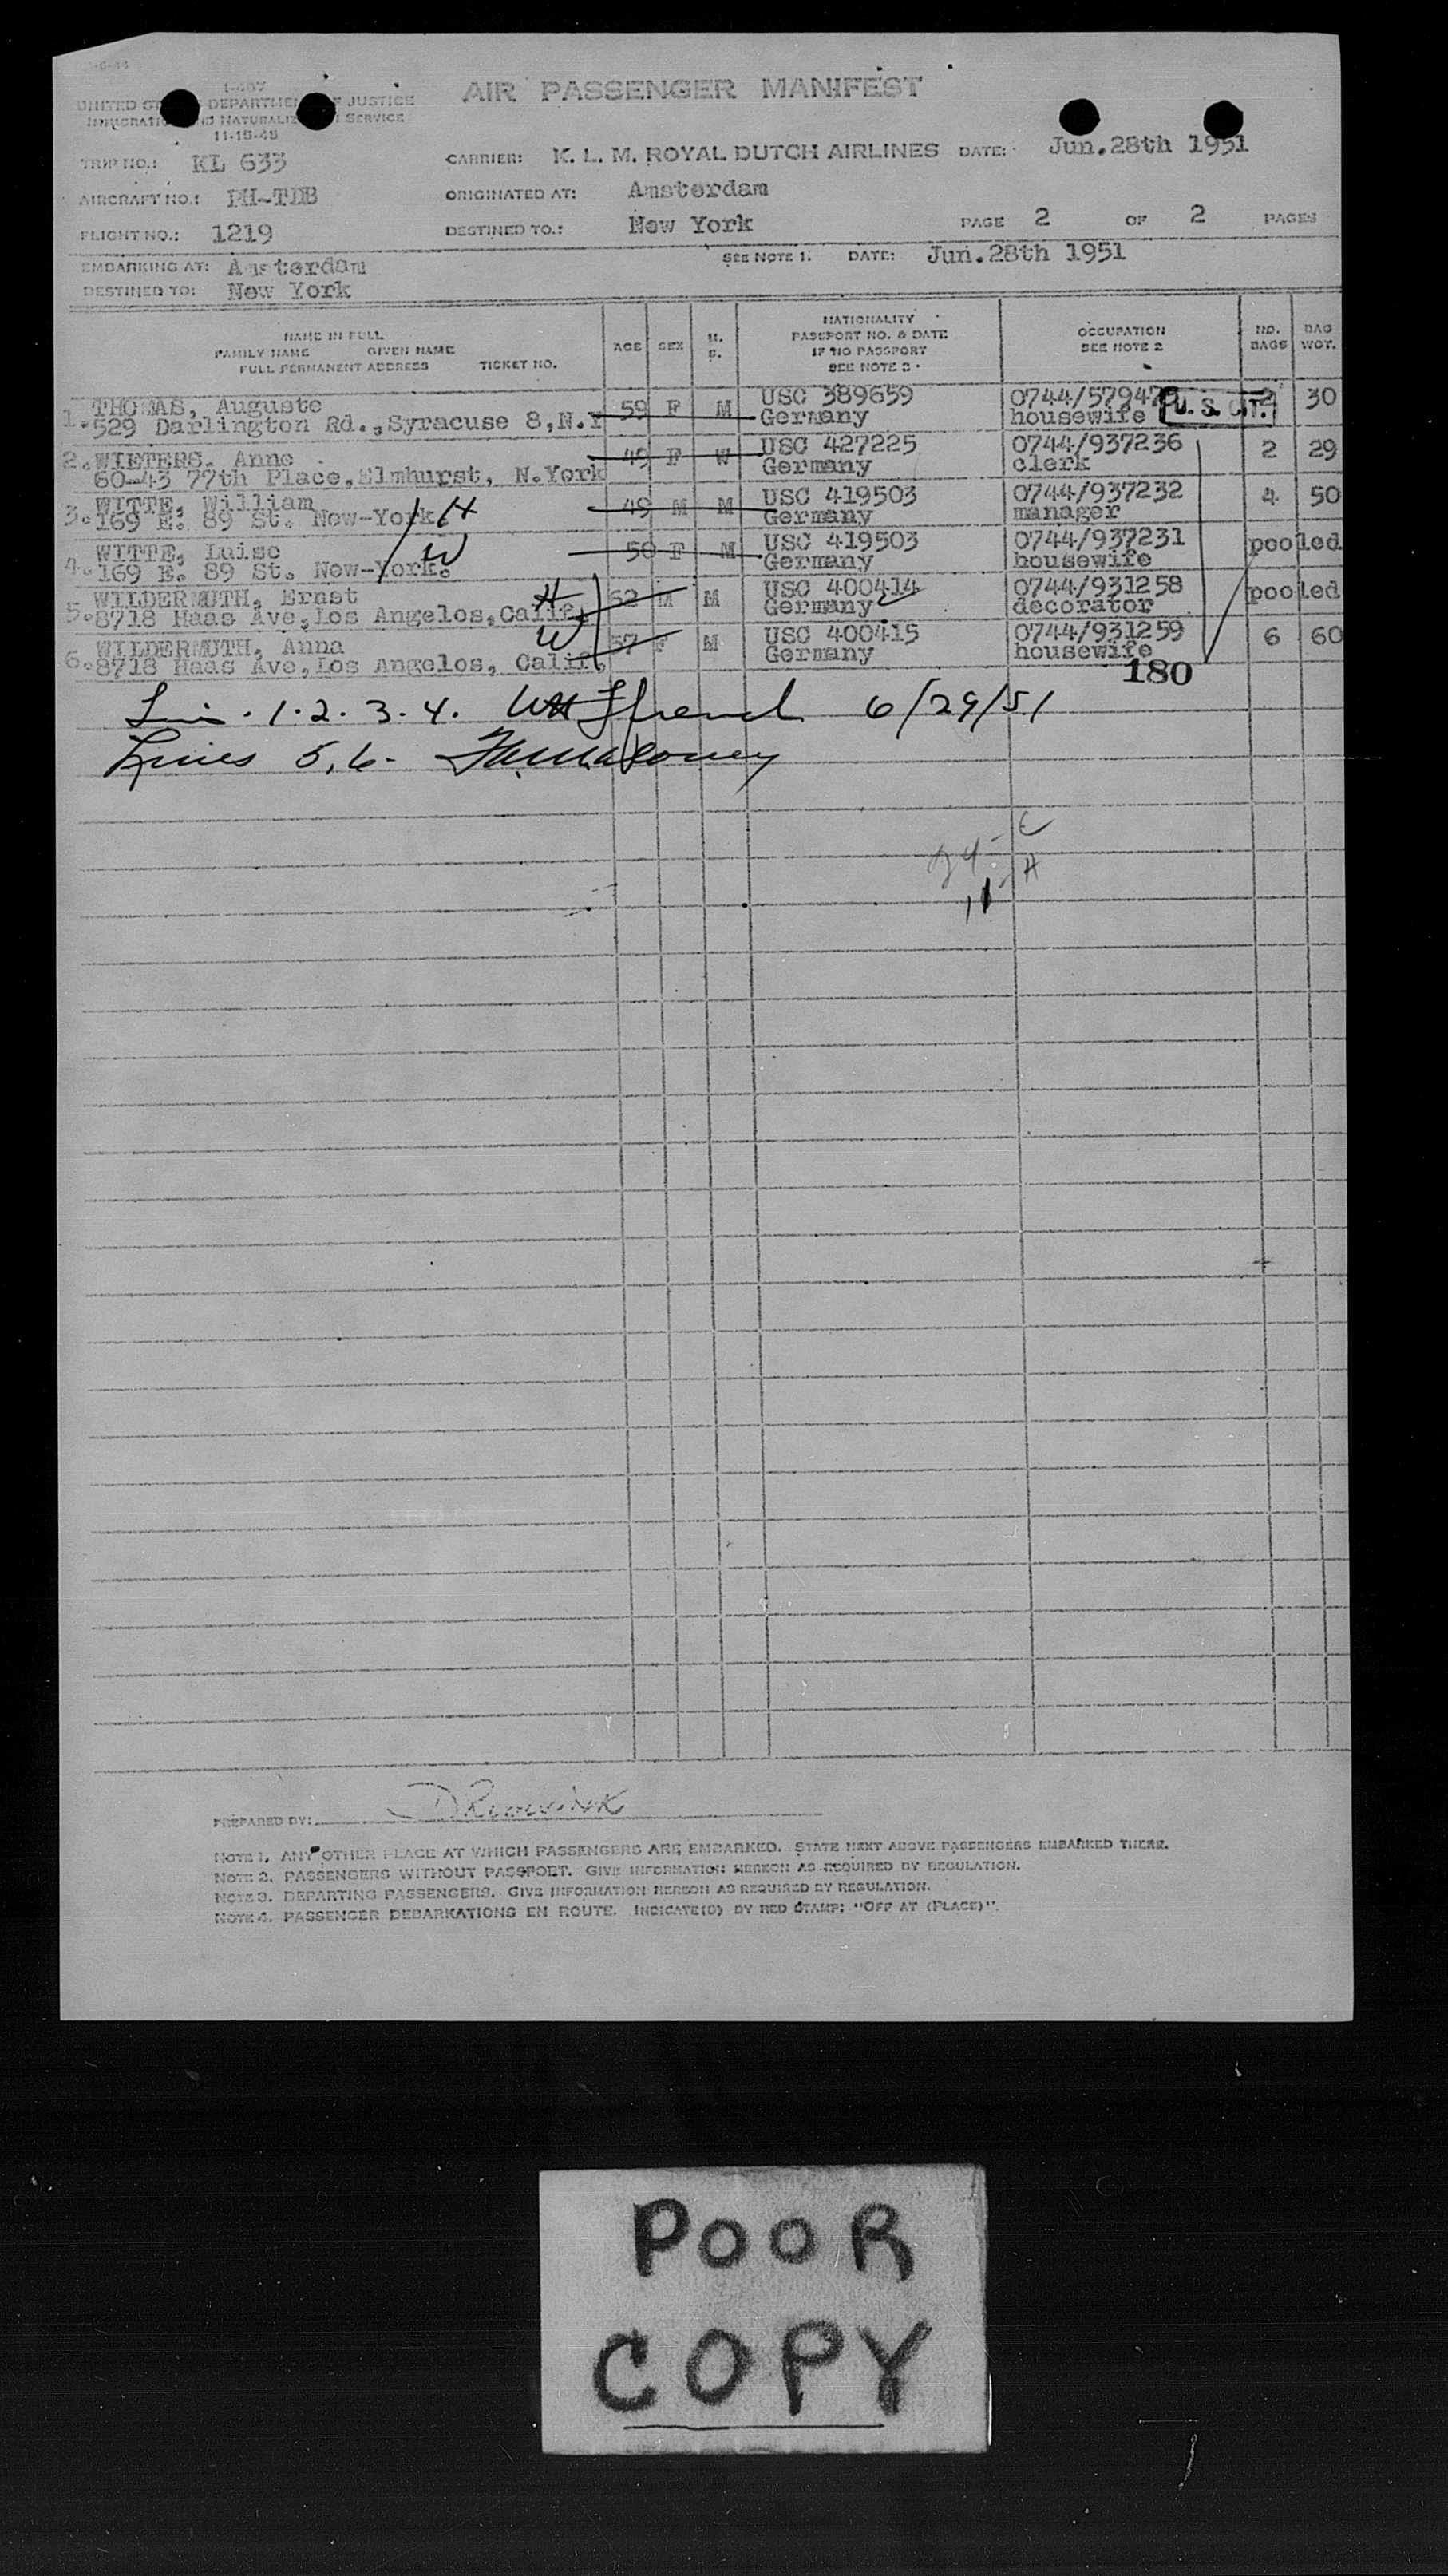 I-467
UNITED STATES DEPARTMENT OF JUSTICE
IMMIGRATION AND NATURALIZATION SERVICE
11-15-45
AIR PASSENGER MANIFEST
TRIP NO.: KL 633 CARRIER: K. L. M. ROYAL DUTCH AIRLINES DATE: Jun.28th 1951
AIRCRAFT NO.: PH-TDB ORIGINATED AT: Amsterdam
FLIGHT NO.: 1219 DESTINED TO.: New York PAGE 2 OF 2 PAGES
EMBARKING AT: Amsterdam SEE NOTE 1. DATE: Jun.28th 1951
DESTINED TO: New York
NAME IN FULL
FAMILY NAME GIVEN NAME
FULL PERMANENT ADDRESS TICKET NO.
AGE SEX M. S.
NATIONALITY
PASSPORT NO. & DATE
IF NO PASSPORT
SEE NOTE 2
OCCUPATION
SEE NOTE 2
NO. BAGS
BAG WGT.
1. THOMAS, Auguste 59 F M USC 389659 0744/579473 2 30
529 Darlington Rd.,Syracuse 8,N.Y Germany housewife U. S. CIT.
2. WIETERS. Anne 49 F W USC 427225 0744/937236 2 29
60-43 77th Place,Elmhurst, N.York Germany clerk
3. WITTE, William 49 M M USC 419503 0744/937232 4 50
169 E. 89 St. New-York. H Germany manager
4. WITTE, Luise 50 F M USC 419503 0744/937231 pooled
169 E. 89 St. New-York. W Germany housewife
5. WILDERMUTH, Ernst H 62 M M USC 400414 0744/931258 pooled
8718 Haas Ave,Los Angelos,Calif. Germany decorator
6. WILDERMUTH, Anna W 57 F M USC 400415 0744/931259 6 60
8718 Haas Ave,Los Angelos, Calif. Germany housewife
180
1.2.3.4. 6/29/51
Lines 5,6-
24-C
11-A
PREPARED BY:
NOTE 1. ANY OTHER PLACE AT WHICH PASSENGERS ARE EMBARKED. STATE NEXT ABOVE PASSENGERS EMBARKED THERE.
NOTE 2. PASSENGERS WITHOUT PASSPORT. GIVE INFORMATION HEREON AS REQUIRED BY REGULATION.
NOTE 3. DEPARTING PASSENGERS. GIVE INFORMATION HEREON AS REQUIRED BY REGULATION.
NOTE 4. PASSENGER DEBARKATIONS EN ROUTE. INDICATE(D) BY RED STAMP: "OFF AT (PLACE)".
POOR
COPY